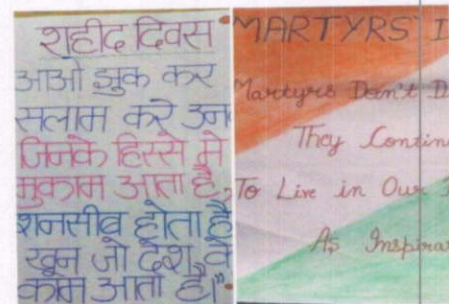 शहीद दिवस
आओ झुक कर
सलाम करे उन
जिनके हिस्से मे
मुकाम आता है,
शनसीब होता है
खून जो देश के
काम आता है।"
MARTYRS'
Martyrs Don't
They
To Live in Our
As